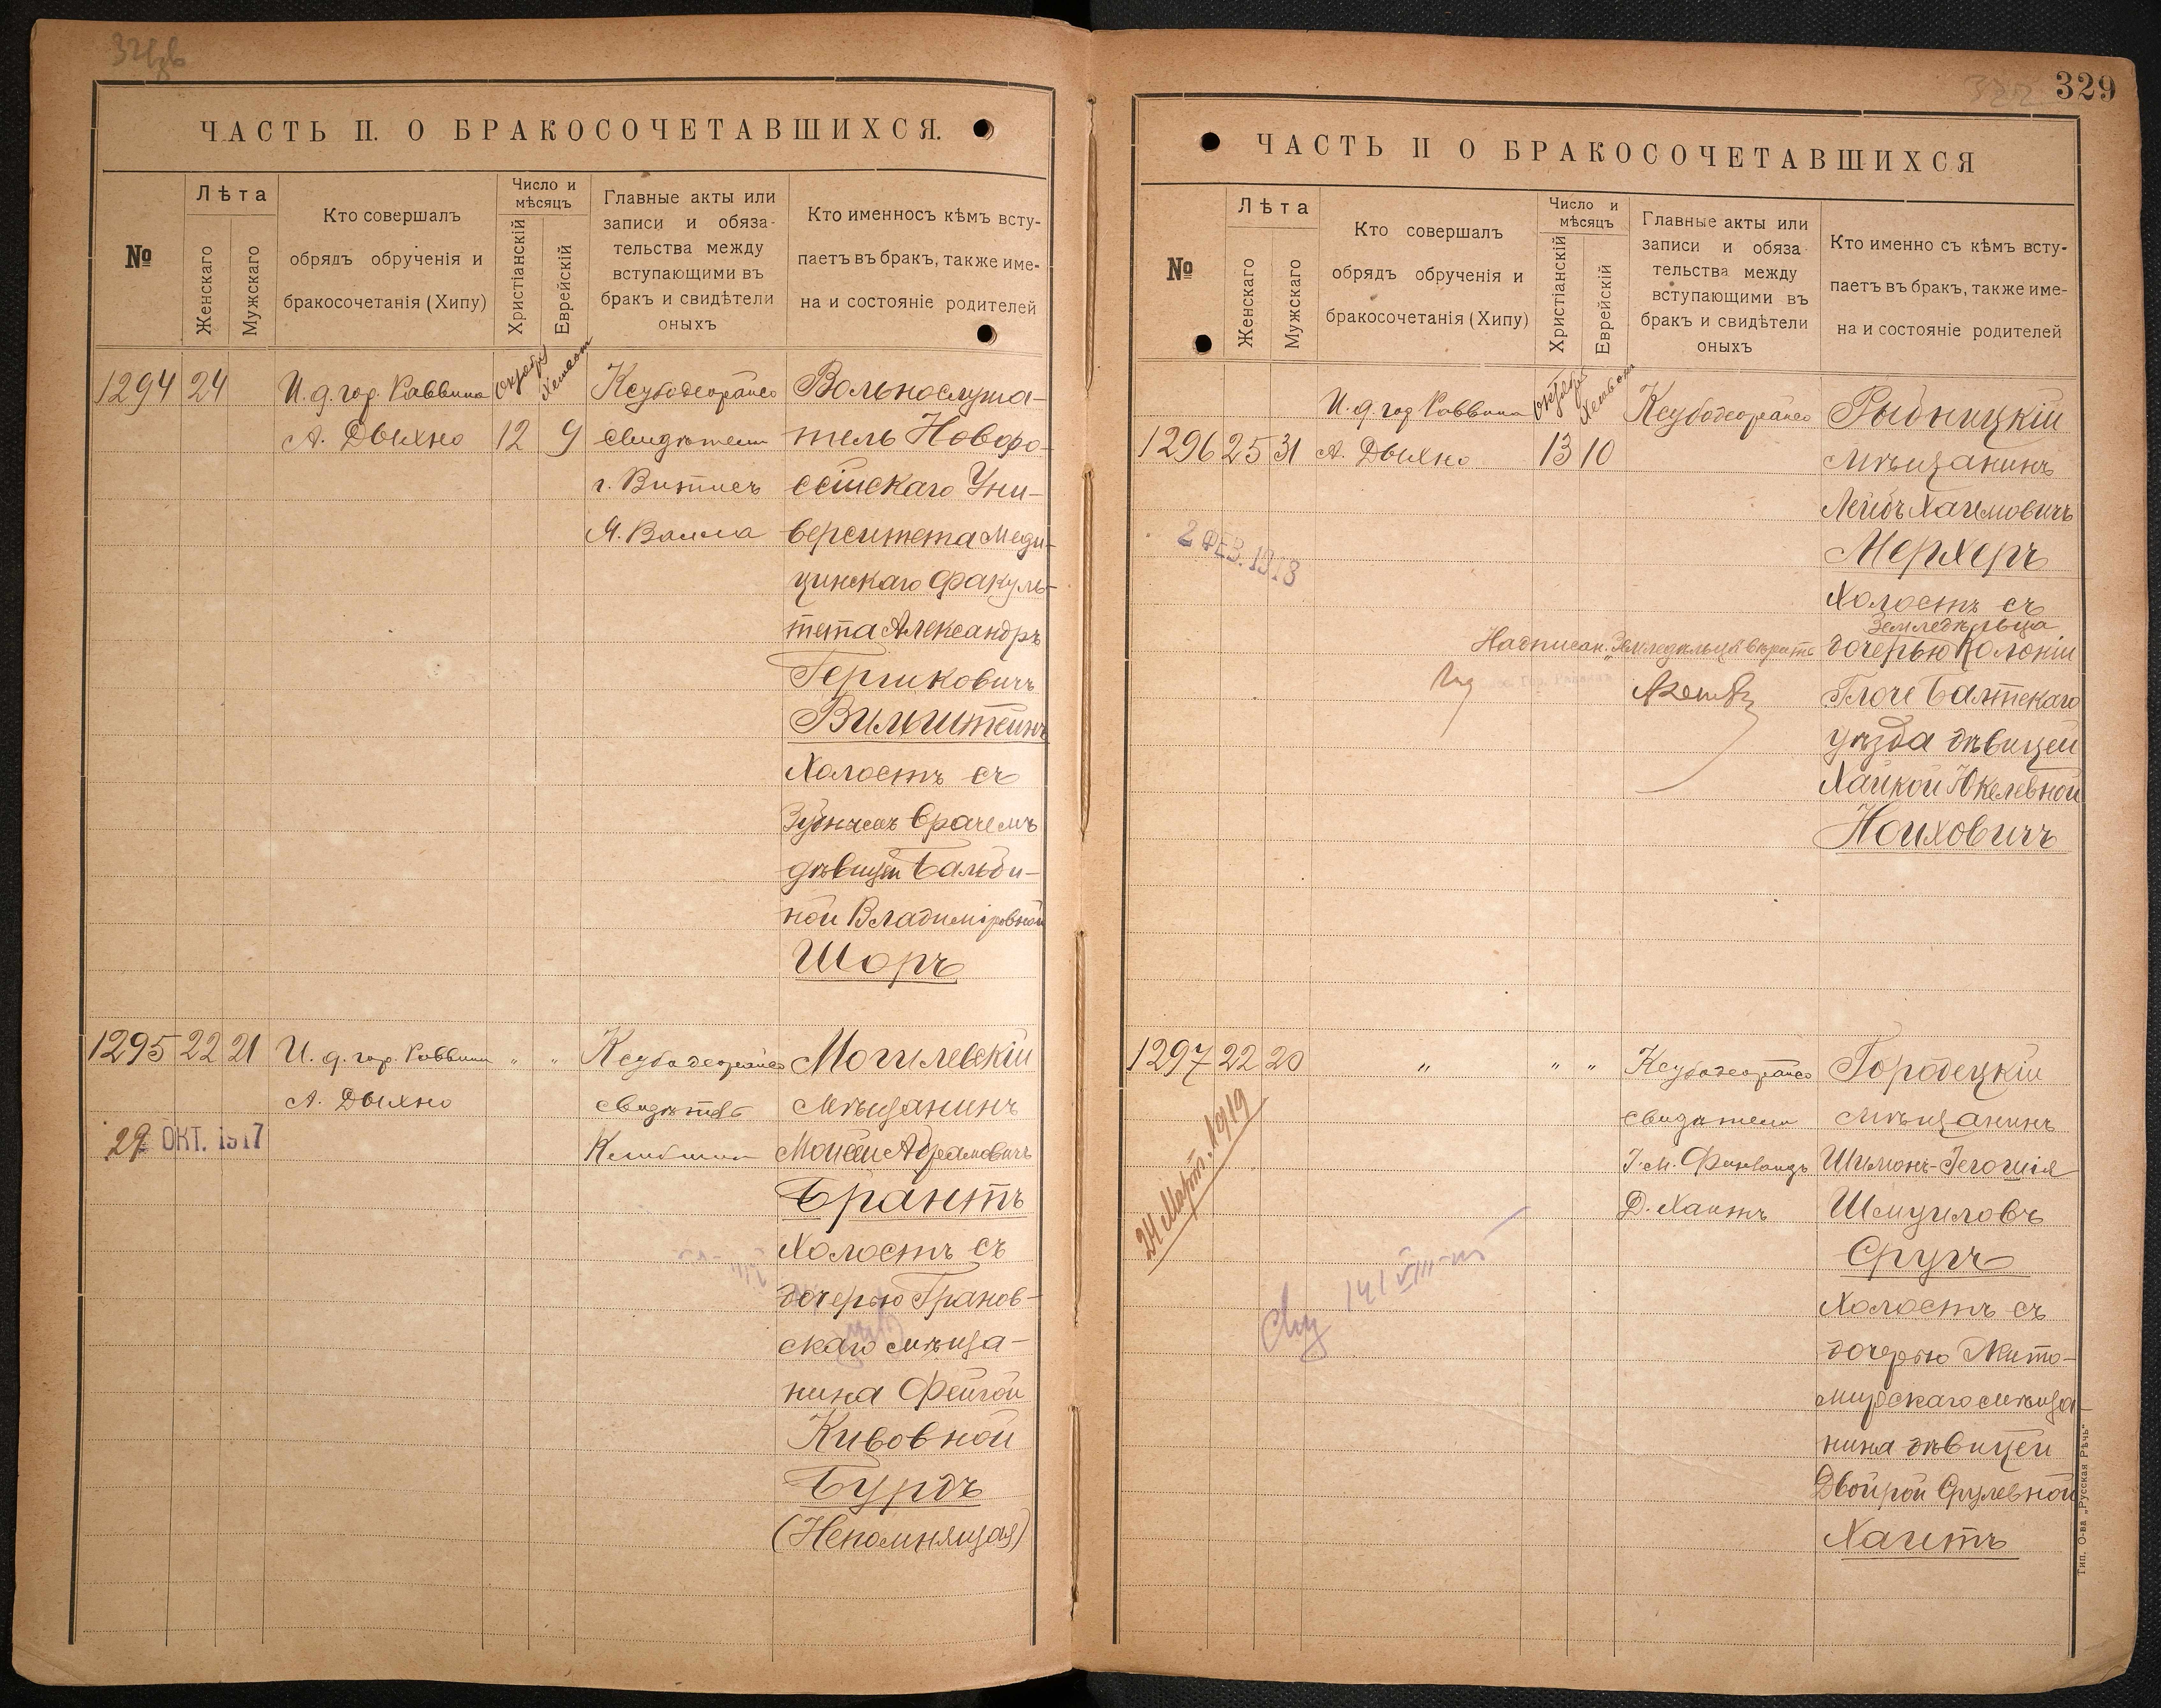 329
ЧАСТЬ II. О БРАКОСОЧЕТАВШИХСЯ.
№
Лѣта
Женскаго
Мужскаго
Кто совершалъ
обрядъ обрученія и
бракосочетанія (Хипу)
Число и
мѣсяцъ
Христіанскій
Еврейскій
Главные акты или
записи и обяза-
тельства между
вступающими въ
бракъ и свидѣтели
оныхъ
Кто именносъ кѣмъ всту-
паетъ въ бракъ, также име-
на и состояніе родителей
1294 24 И. д. гор. Раввина Октября Хешвон
А. Дыхно 12 9
свидѣтели
Вольнослуша-
тель Новоро-
ссійскаго Уни-
верситета Меди-
цинскаго Факуль-
тета Александръ
Гершковичъ
Вилиштейнъ
Холостъ съ
Зубнымъ врачемъ
дѣвицей Бальби-
ной Владиміровной
Шоръ
1295 22 21 И. д. гор. Раввина " "
А. Дыхно
29 ОКТ. 1917
Могилевскій
мѣщанинъ
Моисей Абрамовичъ
Брантъ
Холостъ съ
дочерью Гранов-
скаго мѣща-
нина Фейгой
Кивовной
Бурдъ
(Непомнящая)
ЧАСТЬ II О БРАКОСОЧЕТАВШИХСЯ
№
Лѣта
Женскаго
Мужскаго
Кто совершалъ
обрядъ обрученія и
бракосочетанія (Хипу)
Число и
мѣсяцъ
Христіанскій
Еврейскій
Главные акты или
записи и обяза
тельства между
вступающими въ
бракъ и свидѣтели
оныхъ
Кто именно съ кѣмъ всту-
паетъ въ бракъ, также име-
на и состояніе родителей
И. д. гор Раввина Октября Хешвон
1296 25 31 А. Дыхно 13 10
2 ФЕВ. 1918
Рыбницкій
мѣщанинъ
Лейбъ Хаимовичъ
Мерхеръ
Холостъ съ
Земледѣльца
дочерью Колоніи
Надписан. "Земледѣльца" вѣрить
Глоче Балтскаго
уѣзда дѣвицей
Хайкой Юкелевной
Ноиховичъ
1297 22 20 " " "
свидѣтели
Д. Хаитъ
24 Март. 1919
Городецкій
мѣщанинъ
Шимонъ-Іегошія
Шмуиловъ
Сругъ
Холостъ съ
дочерью Жито-
мирскаго мѣща-
нина дѣвицей
Двойрой Срулевной
Хаитъ
Тип. О-ва „Русская Рѣчь“